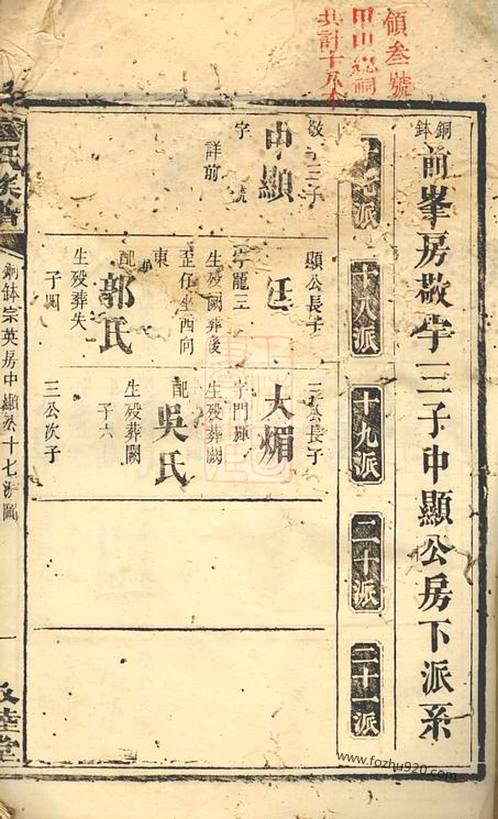 領叁號
共計十八
銅鉢
前峯房敬宇三子中顯公房下派系
十八派
十九派
二十派
二十一派
敬三子
中顯
字 號
詳前
顯公長子
生殁闕葬後
歪仔坐西向
東
配郭氏
生殁葬失
子四
公長子
大媚
字門輝
生殁葬闕
配吳氏
生殁葬闕
子六
三公次子
氏族譜
銅鉢宗英房中顯公十七派圖
一
www.fozhu920.com